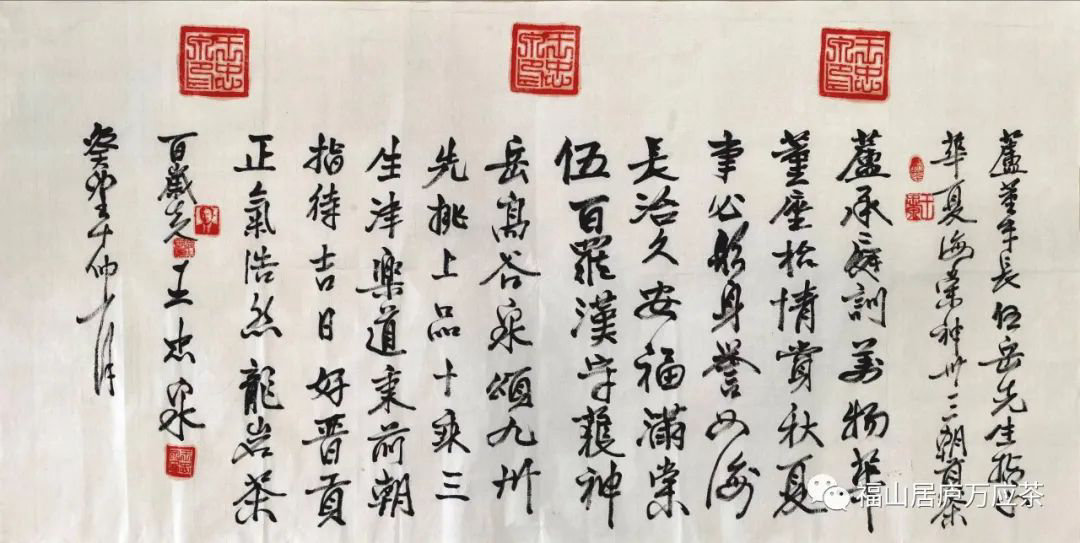 蘆董事長伍岳先生指正
華夏海棠神州二朝貢茶
蘆承庭訓萬物華
董座枱情賞秋夏
事必躬身譽四海
長治久安福滿棠
伍百羅漢守護神
岳高谷泉頌九州
先挑上品十乘三
生津樂道東前朝
指待吉日好晋貢
正氣浩然龍岩茶
百歲老人王忠泉
癸卯年仲十月
福山居庐万应茶